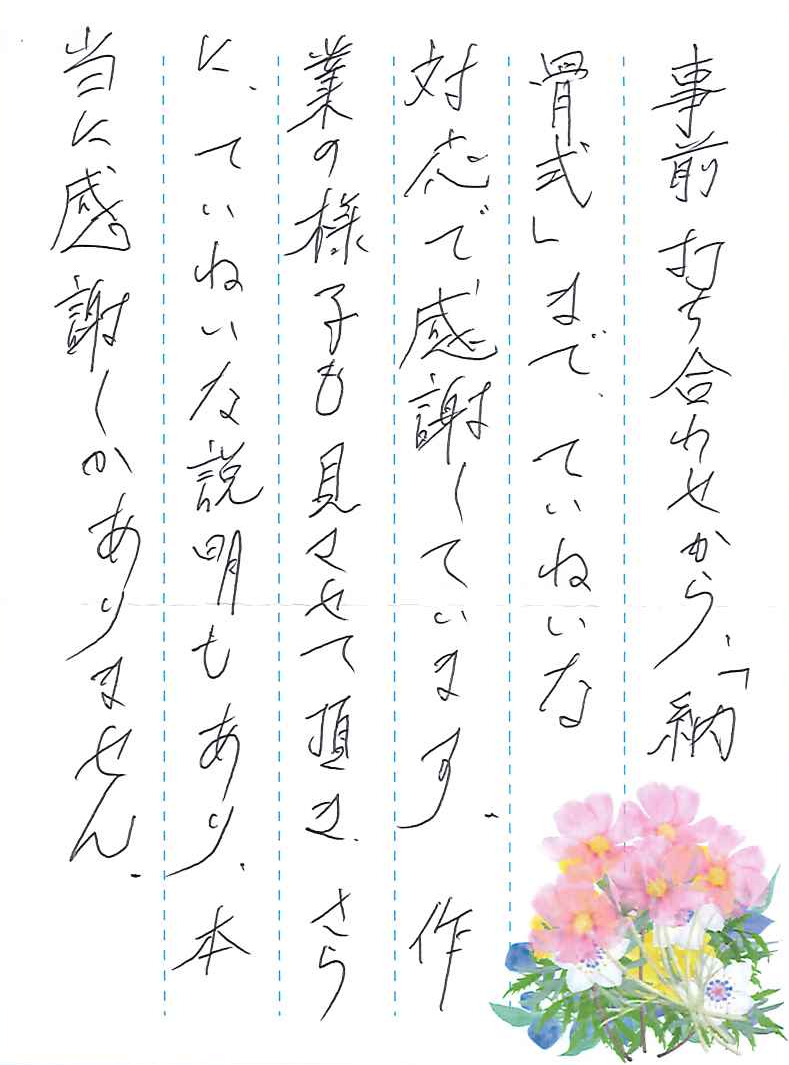 事前打ち合わせから、「納
骨式」まで、ていねいな
対応で感謝しています。作
業の様子も見させて頂き、さら
に、ていねいな説明もあり、本
当に感謝しかありません。